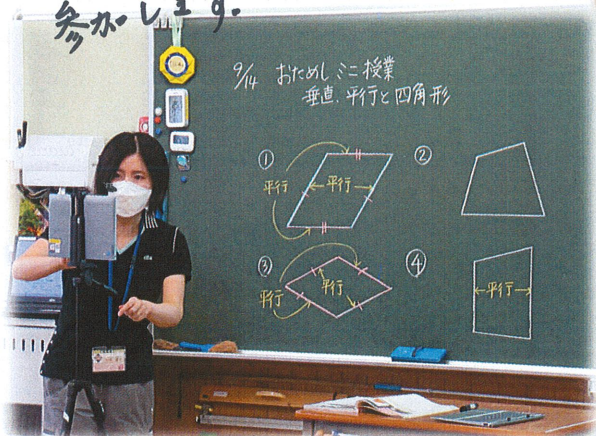 参加します。
9/14 おためしミニ授業
垂直、平行と四角形
①
平行
平行
②
③
平行
平行
④
平行